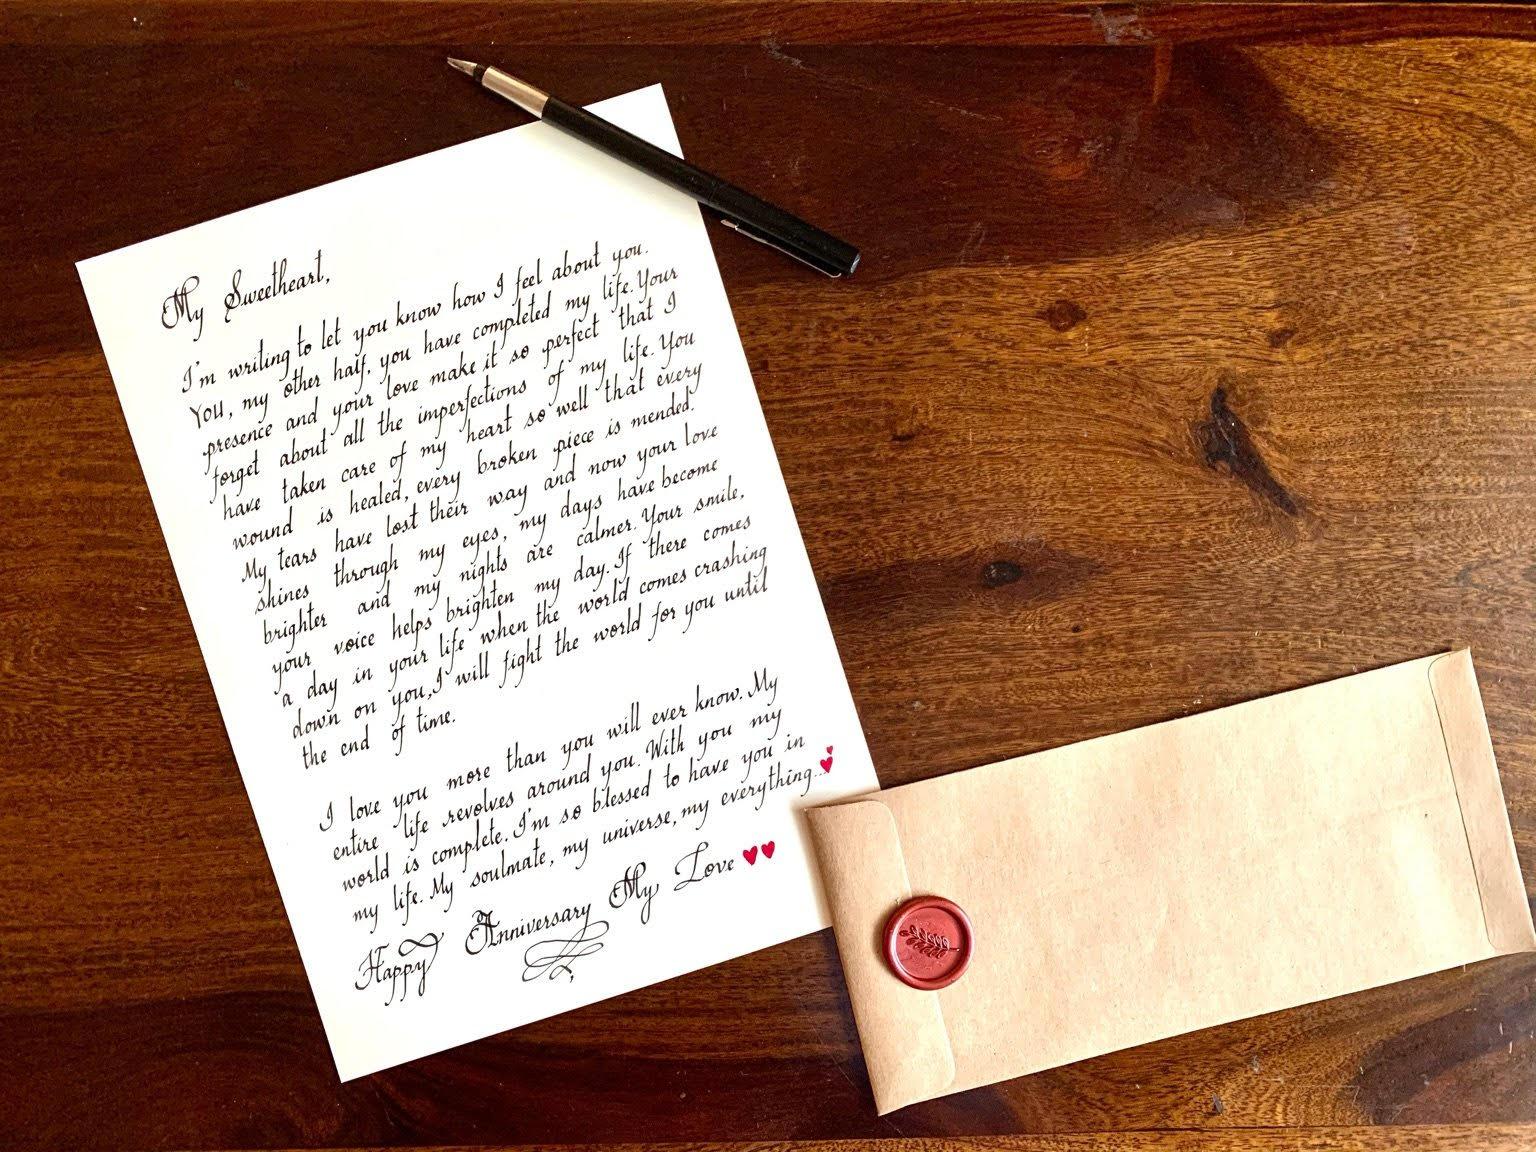 My Sweetheart,
I'm writing to let you know how I feel about you.
You, my other half, you have completed my life. Your
presence and your love make it so perfect that I
forget about all the imperfections of my life. You
have taken care of my heart so well that every
wound is healed, every broken piece is mended.
My tears have lost their way and now your love
shines through my eyes, my days have become
brighter and my nights are calmer. Your smile,
your voice helps brighten my day. If there comes
a day in your life when the world comes crashing
down on you, I will fight the world for you until
the end of time.
I love you more than you will ever know. My
entire life revolves around you. With you my
world is complete. I'm so blessed to have you in
my life. My soulmate, my universe, my everything...
Happy Anniversary My Love